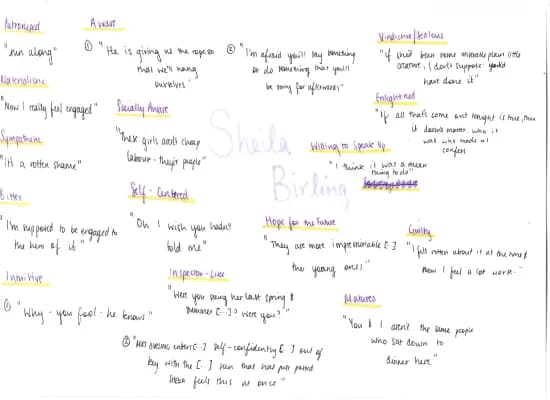 Patronised
"run along"
Materialistic
"Now I really feel engaged"
Sympathetic
"It's a rotten shame"
Bitter
"I'm supposed to be engaged to
the hero of it"
Intuitive
① "Why - you fool - he knows"
Aware
① "He is giving us the rope so
that we'll hang
ourselves"
② "I'm afraid you'll say something
or do something that you'll
be sorry for afterwards"
Socially Aware
"These girls aren't cheap
labour - they're people"
Self - Centred
"Oh I wish you hadn't
told me"
Inspector - Like
"Were you seeing her last spring &
summer [...]? Were you?"
② "Mrs Birling enters [...] self-confidently [ ] out of
key with the [...] scene that has just passed
Sheila feels this at once"
Sheila
Birling
Vindictive/Jealous
"If she'd been some miserable plain little
creature, I don't suppose
have done it"
Enlightened
"If all that's come out tonight is true, then
it doesn't matter who it
was who made us
confess
Willing to Speak Up
"I think it was a mean
thing to do"
Hope for the Future
"They are more impressionable [..]
the young ones"
Guilty
"I felt rotten about it at the time &
now I feel a lot worse."
Matures
"You & I aren't the same people
who sat down to
dinner here"